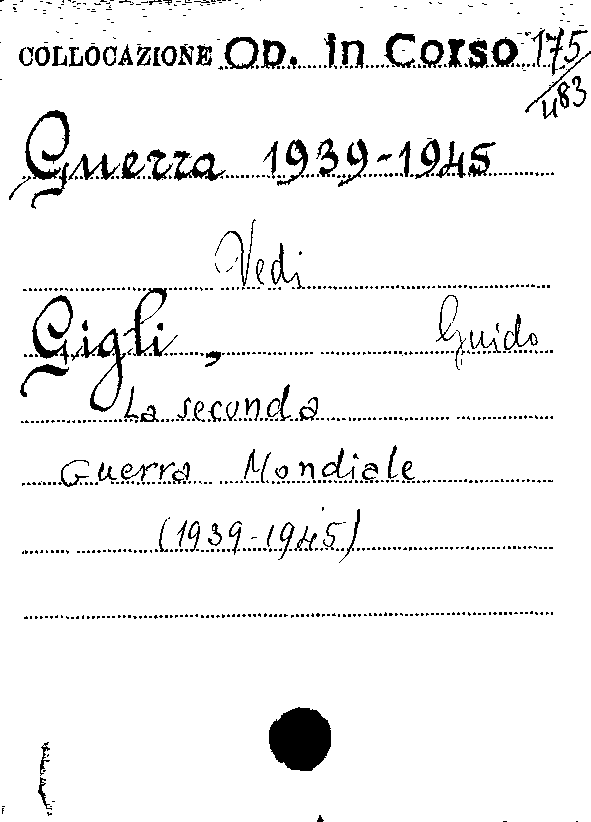 COLLOCAZIONE Op. in Corso 175/483
Guerra 1939-1945
Vedi
Gigli, Guido
La seconda
Guerra Mondiale
(1939-1945)